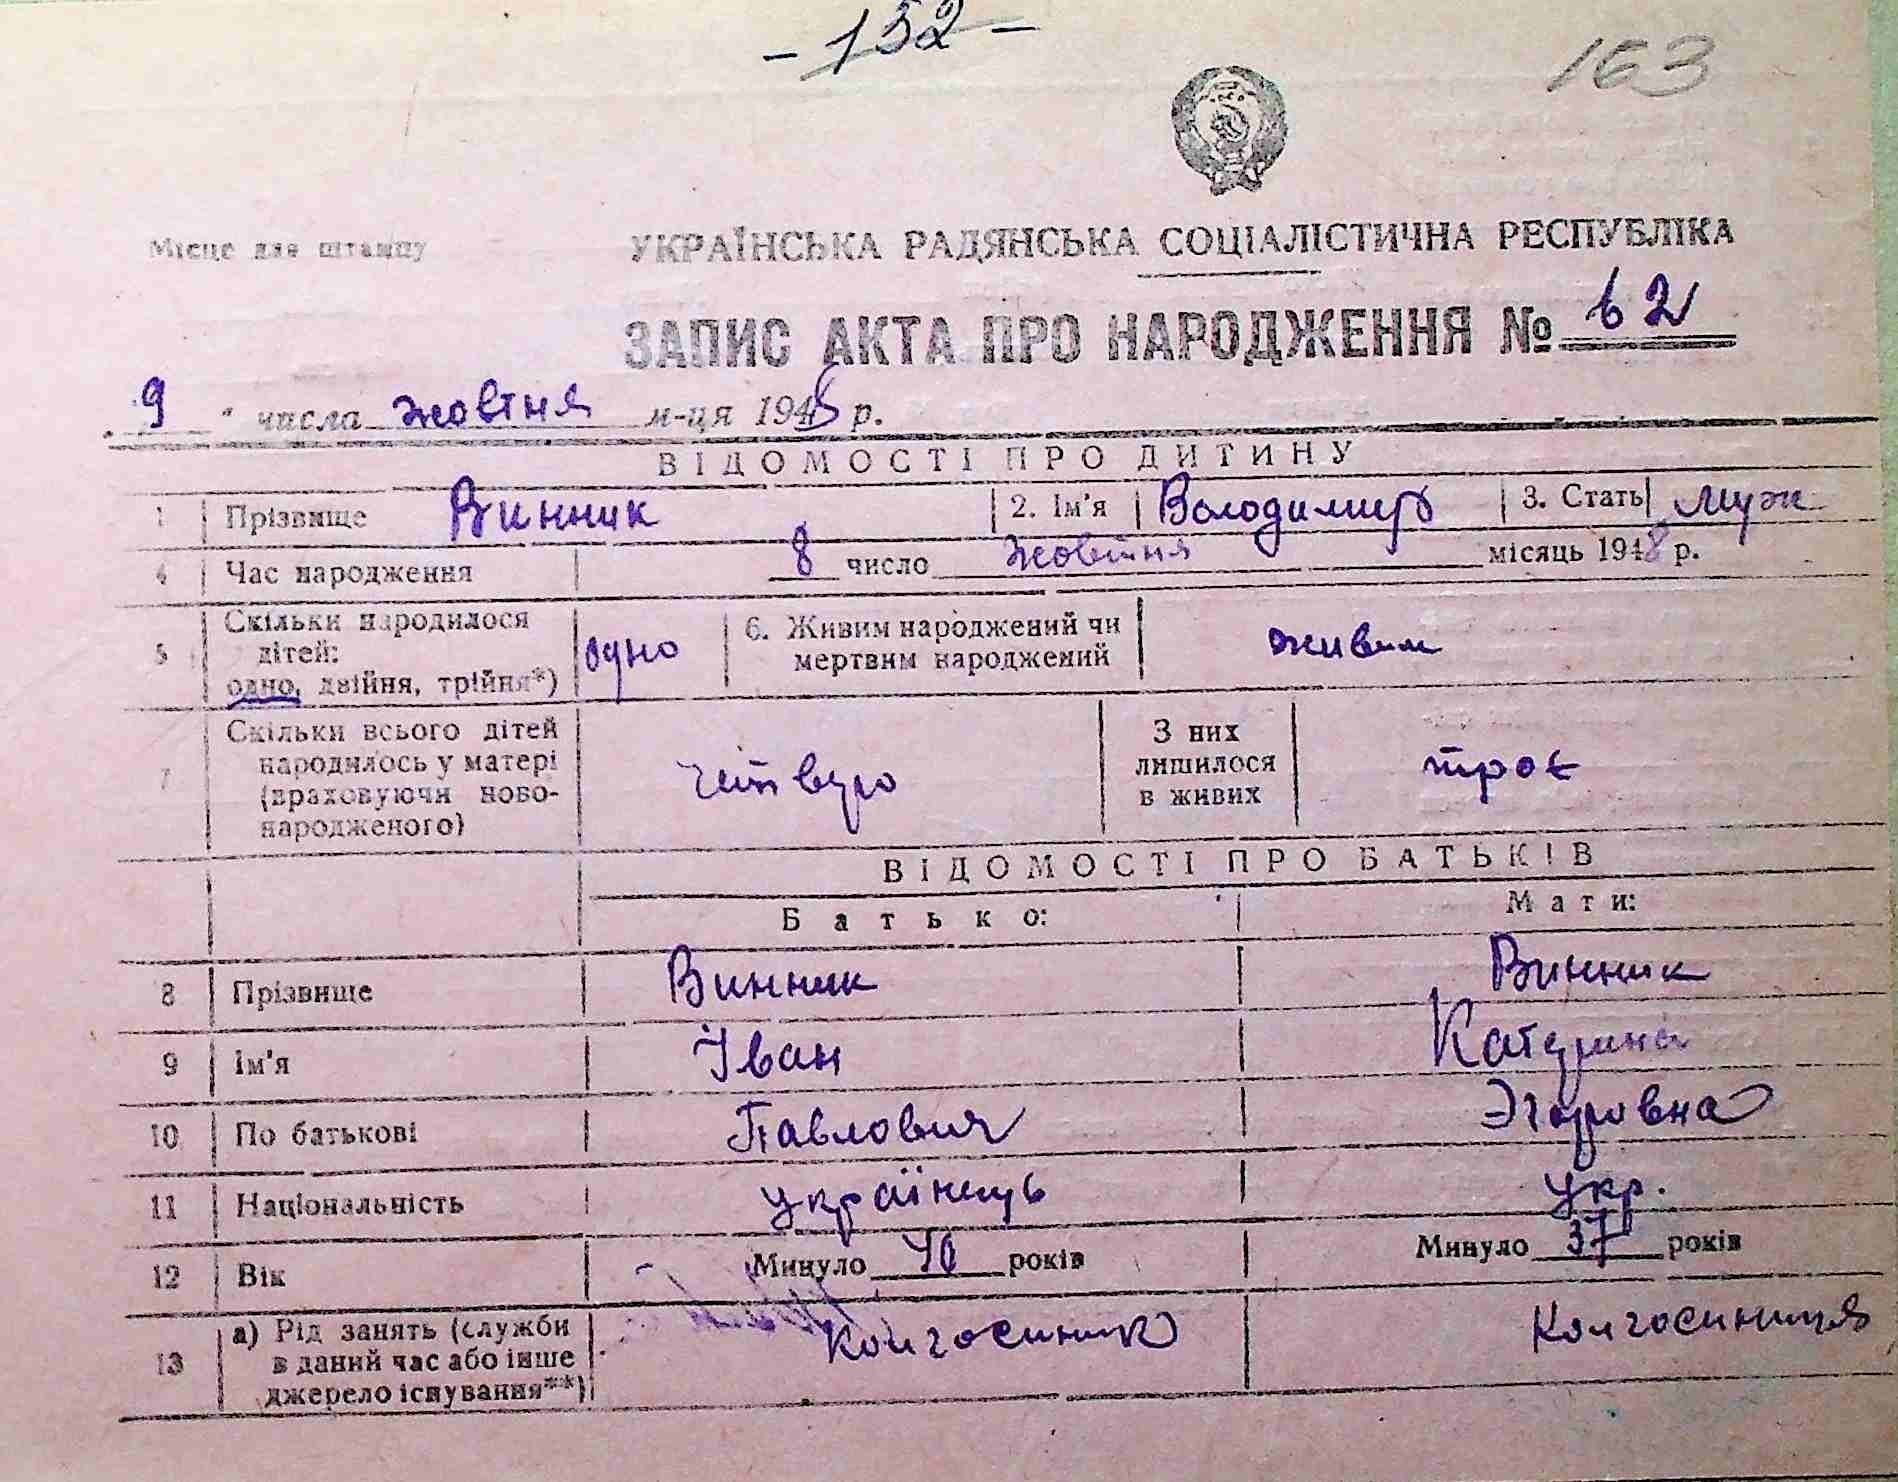 - 152 -
163
Місце для штампу
УКРАЇНСЬКА РАДЯНСЬКА СОЦІАЛІСТИЧНА РЕСПУБЛІКА
ЗАПИС АКТА ПРО НАРОДЖЕННЯ № 62
9 " числа жовтня м-ця 1948 р.
ВІДОМОСТІ ПРО ДИТИНУ
1 Прізвище Винник 2. Ім'я Володимир 3. Стать муж
4 Час народження 8 число жовтня місяць 1948 р.
5 Скільки народилося дітей: одно, двійня, трійня*) одно 6. Живим народжений чи мертвим народжений живим
7 Скільки всього дітей народилось у матері (враховуючи новонародженого) четверо З них лишилося в живих троє
ВІДОМОСТІ ПРО БАТЬКІВ
Батько: Мати:
8 Прізвище Винник Винник
9 Ім'я Іван Катерина
10 По батькові Павлович Єгоровна
11 Національність українець укр.
12 Вік Минуло 40 років Минуло 37 років
13 а) Рід занять (служби в даний час або інше джерело існування**) Колгоспник Колгоспниця